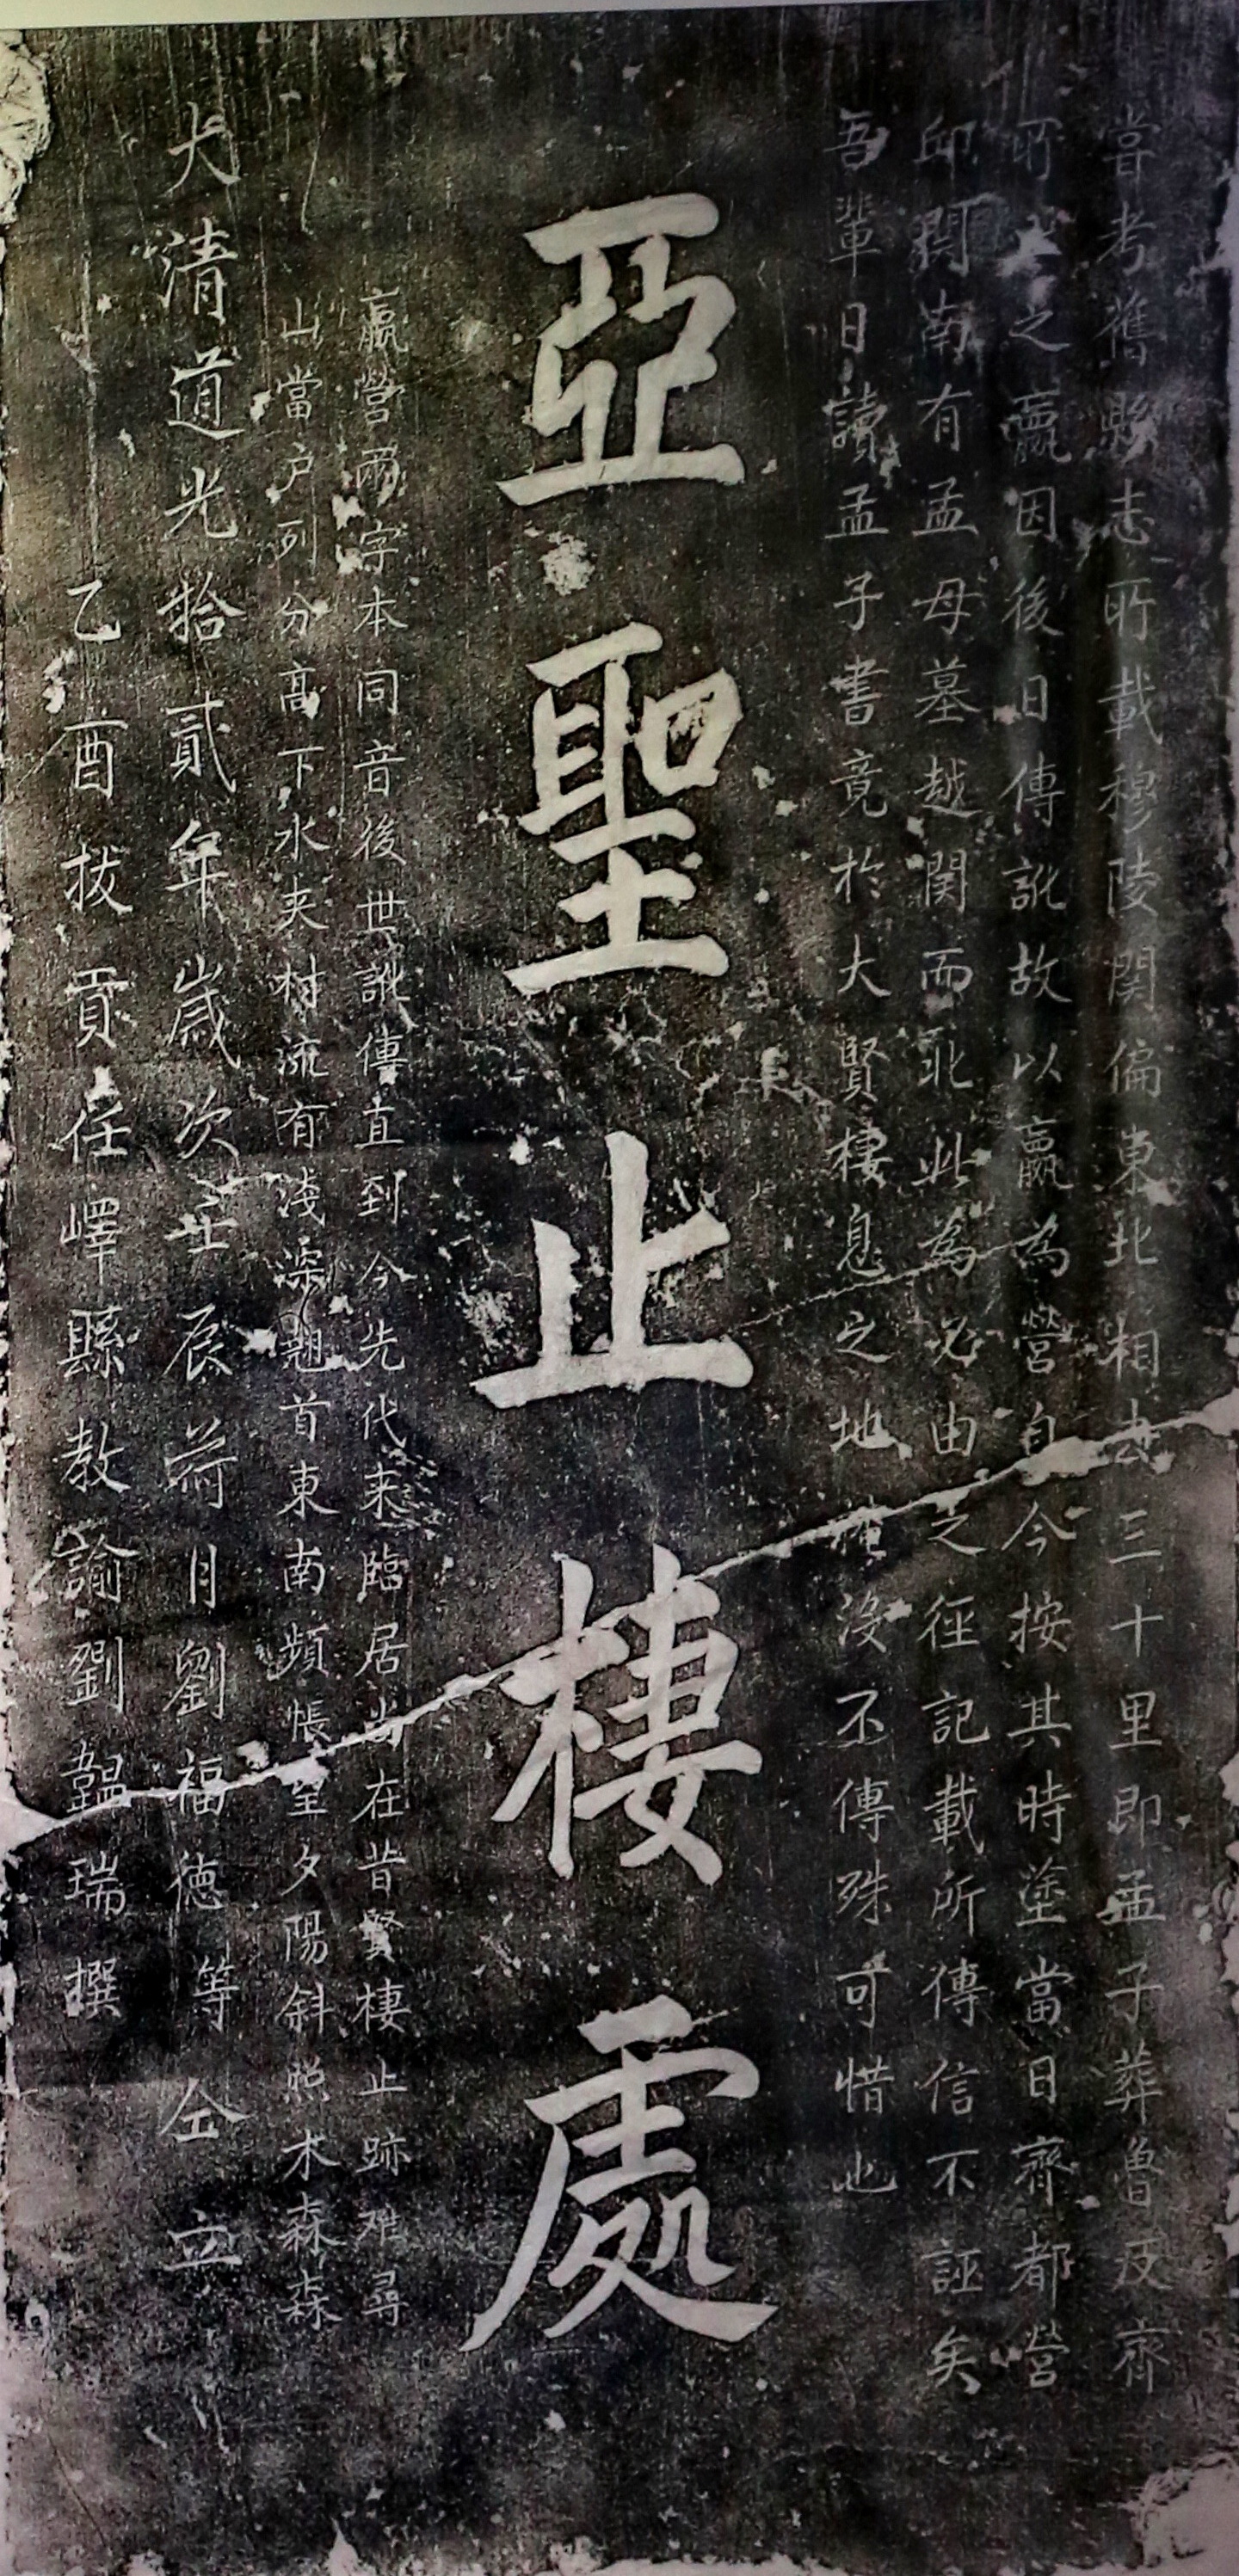 嘗考舊縣志所載穆陵関偏東北相去三十里即孟子葬魯反齊
所止之嬴因後日傳訛故以嬴為營自今按其時塗當日齊都營
邱関南有孟母墓越関而北此為必由之徑記載所傳信不誣矣
吾輩日讀孟子書竟於大賢棲息之地 沒不傳殊可惜也
亞聖止棲處
嬴營兩字本同音後世訛傳直到今先代来臨居尚在昔賢棲止跡难尋
山當户列分高下水夹村流有淺深翹首東南頻悵望夕陽斜照木森森
大清道光拾貳年歲次壬辰荷月劉福德等仝立
乙酉拔貢任嶧縣教諭劉韞瑞撰